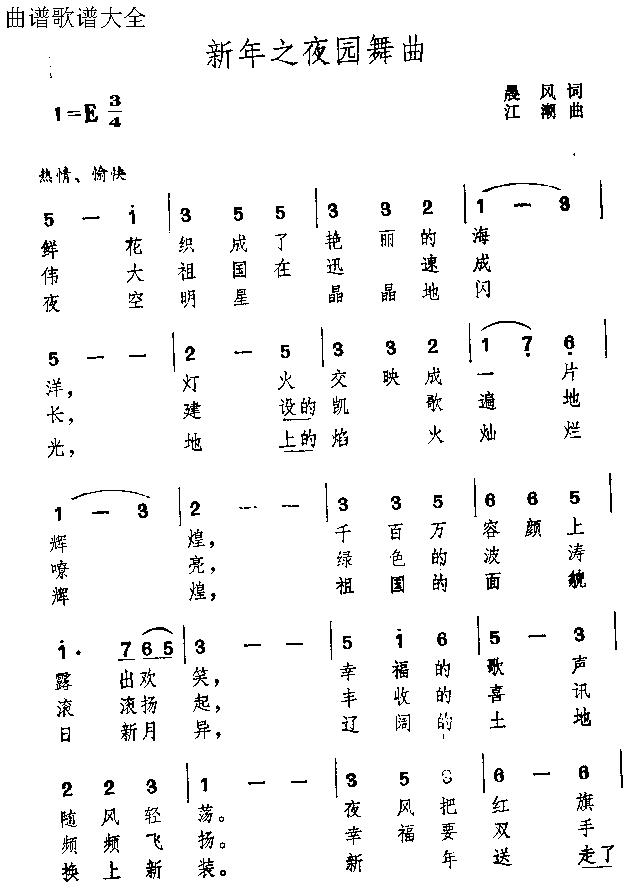 曲谱歌谱大全
新年之夜园舞曲
晨风词
1=E 3/4
江潮曲
热情、愉快
5 — i | 3 5 5 | 3 3 2 | 1 — 3 |
鲜 花 织 成 了 艳 丽 的 海
伟 大 祖 国 在 迅 速 成
夜 空 明 星 晶 晶 地 闪
5 — — | 2 — 5 | 3 3 2 | 1 7 6 |
洋, 灯 火 交 映 成 一 片
长, 建 设的 凯 歌 遍 地
光, 地 上的 焰 火 灿 烂
1 — 3 | 2 — — | 3 3 5 | 6 6 5 |
辉 煌, 千 百 万 容 颜 上
嘹 亮, 绿 色 的 波 涛
辉 煌, 祖 国 的 面 貌
i. 7 6 5 | 3 — — | 5 i 6 | 5 — 3 |
露 出 欢 笑, 幸 福 的 歌 声
滚 滚 扬 起, 丰 收 的 喜 讯
日 新 月 异, 辽 阔 的 土 地
2 2 3 | 1 — — | 3 5 6 | 6 — 6 |
随 风 轻 荡。 夜 风 把 红 旗
频 频 飞 扬。 幸 福 要 双 手
换 上 新 装。 新 年 送 走了